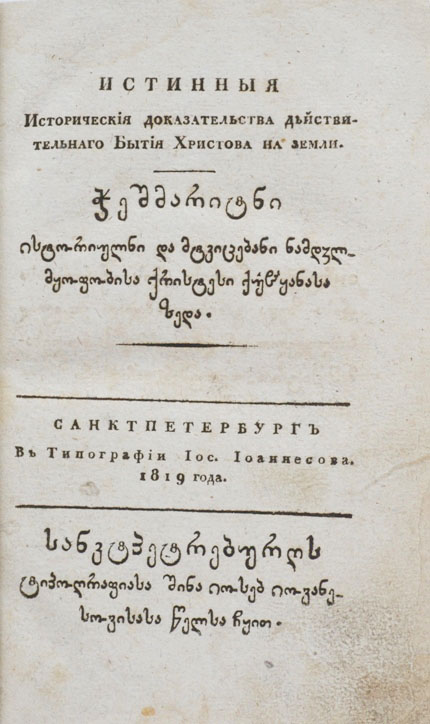 ИСТИННЫЯ
Историческія доказательства дѣйстви-
тельнаго Бытія Христова на земли.
ჭეშმარიტნი
ისტორიულნი და მტკიცებანი ნამდჳლ-
მყოფობისა ქრისტესი ქუჱყანასა
ზედა.
САНКТПЕТЕРБУРГЪ
Въ Типографіи Іос. Іоаннесова.
1819 года.
სანკტპეტრებურღს
ტიპოღრაფიასა შინა იოსებ იოვანე-
სოვისასა წელსა ჩყით.